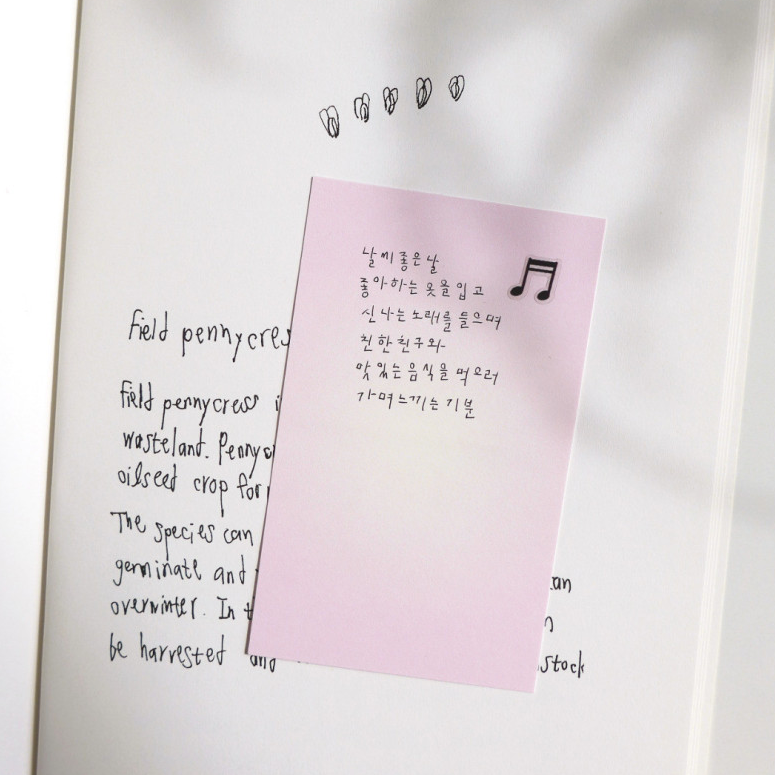 날씨 좋은 날
좋아하는 옷을 입고
신나는 노래를 들으며
친한 친구와
맛있는 음식을 먹으러
가며 느끼는 기분
Field pennycres
Field pennycress i
wasteland. Penny
oilseed crop for
The species can
germinate and
overwinter. In t
be harvested and
stock